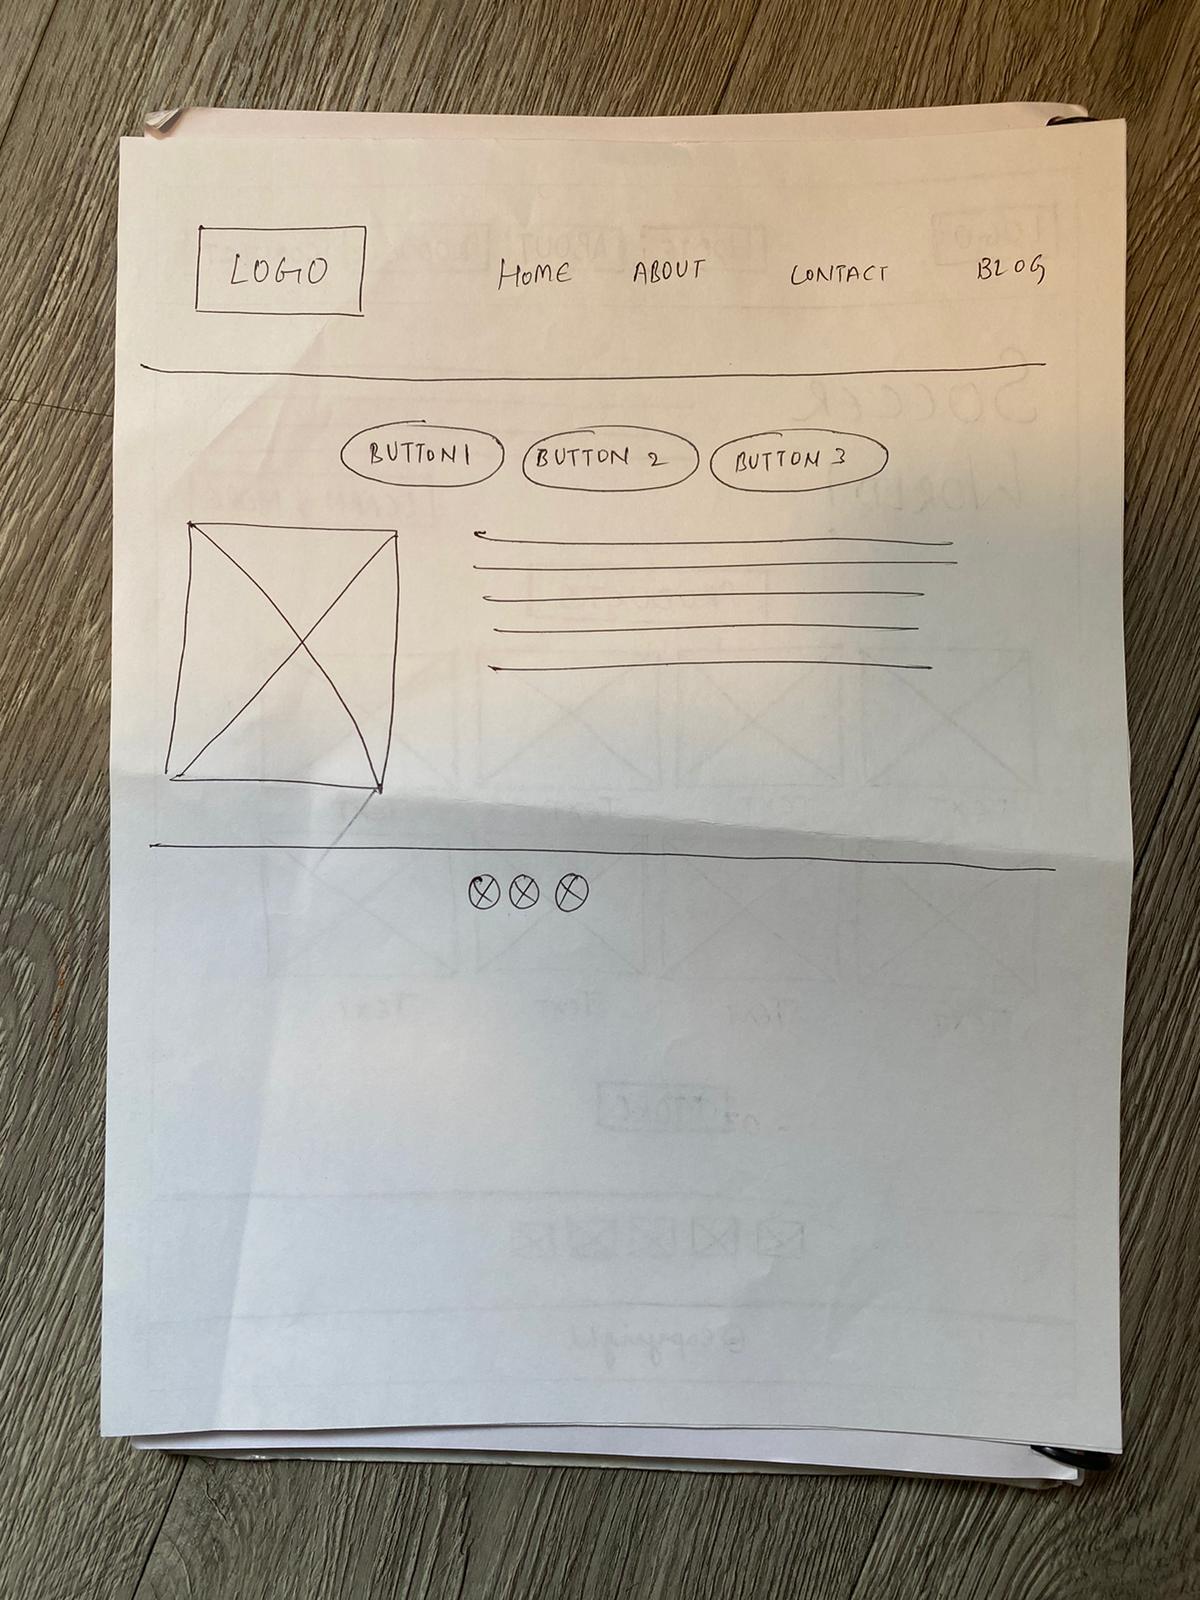 LOGO HOME ABOUT CONTACT BLOG
BUTTON1 BUTTON 2 BUTTON 3